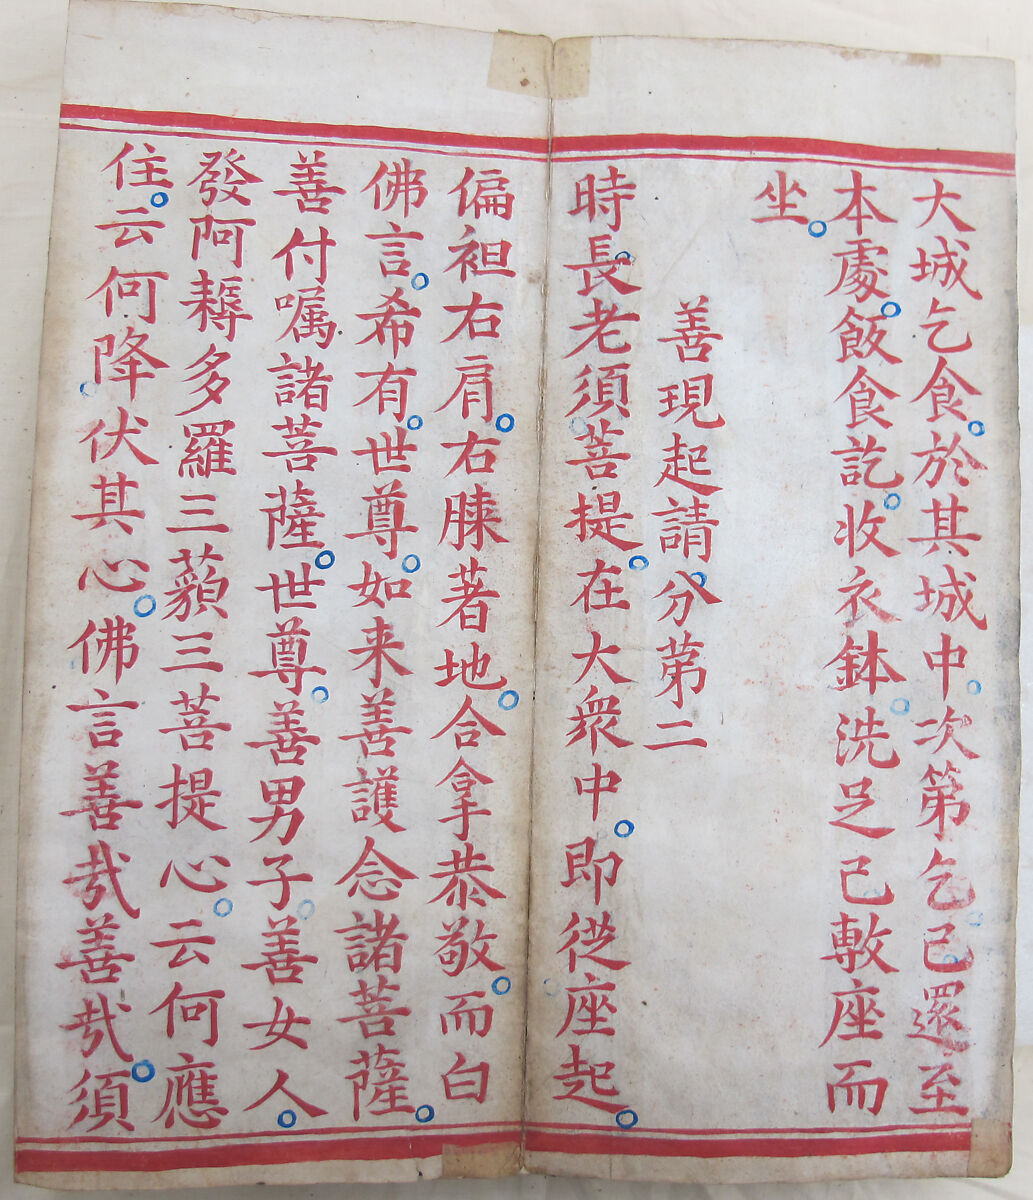 大城乞食。於其城中。次第乞。已。還至
本處。飯食訖。收衣鉢。洗足已。敷座而
坐。
善現起請。分第二
時。長老須。菩提。在大衆中。即從座起。
偏袒右肩。右膝著地。合拿恭敬。而白
佛言。希有。世尊。如来善護念諸菩薩。
善付嘱諸菩薩。世尊。善男子。善女人。
發阿耨多羅三藐三菩提心。云何應
住。云何降。伏其心。佛言善哉善哉。須